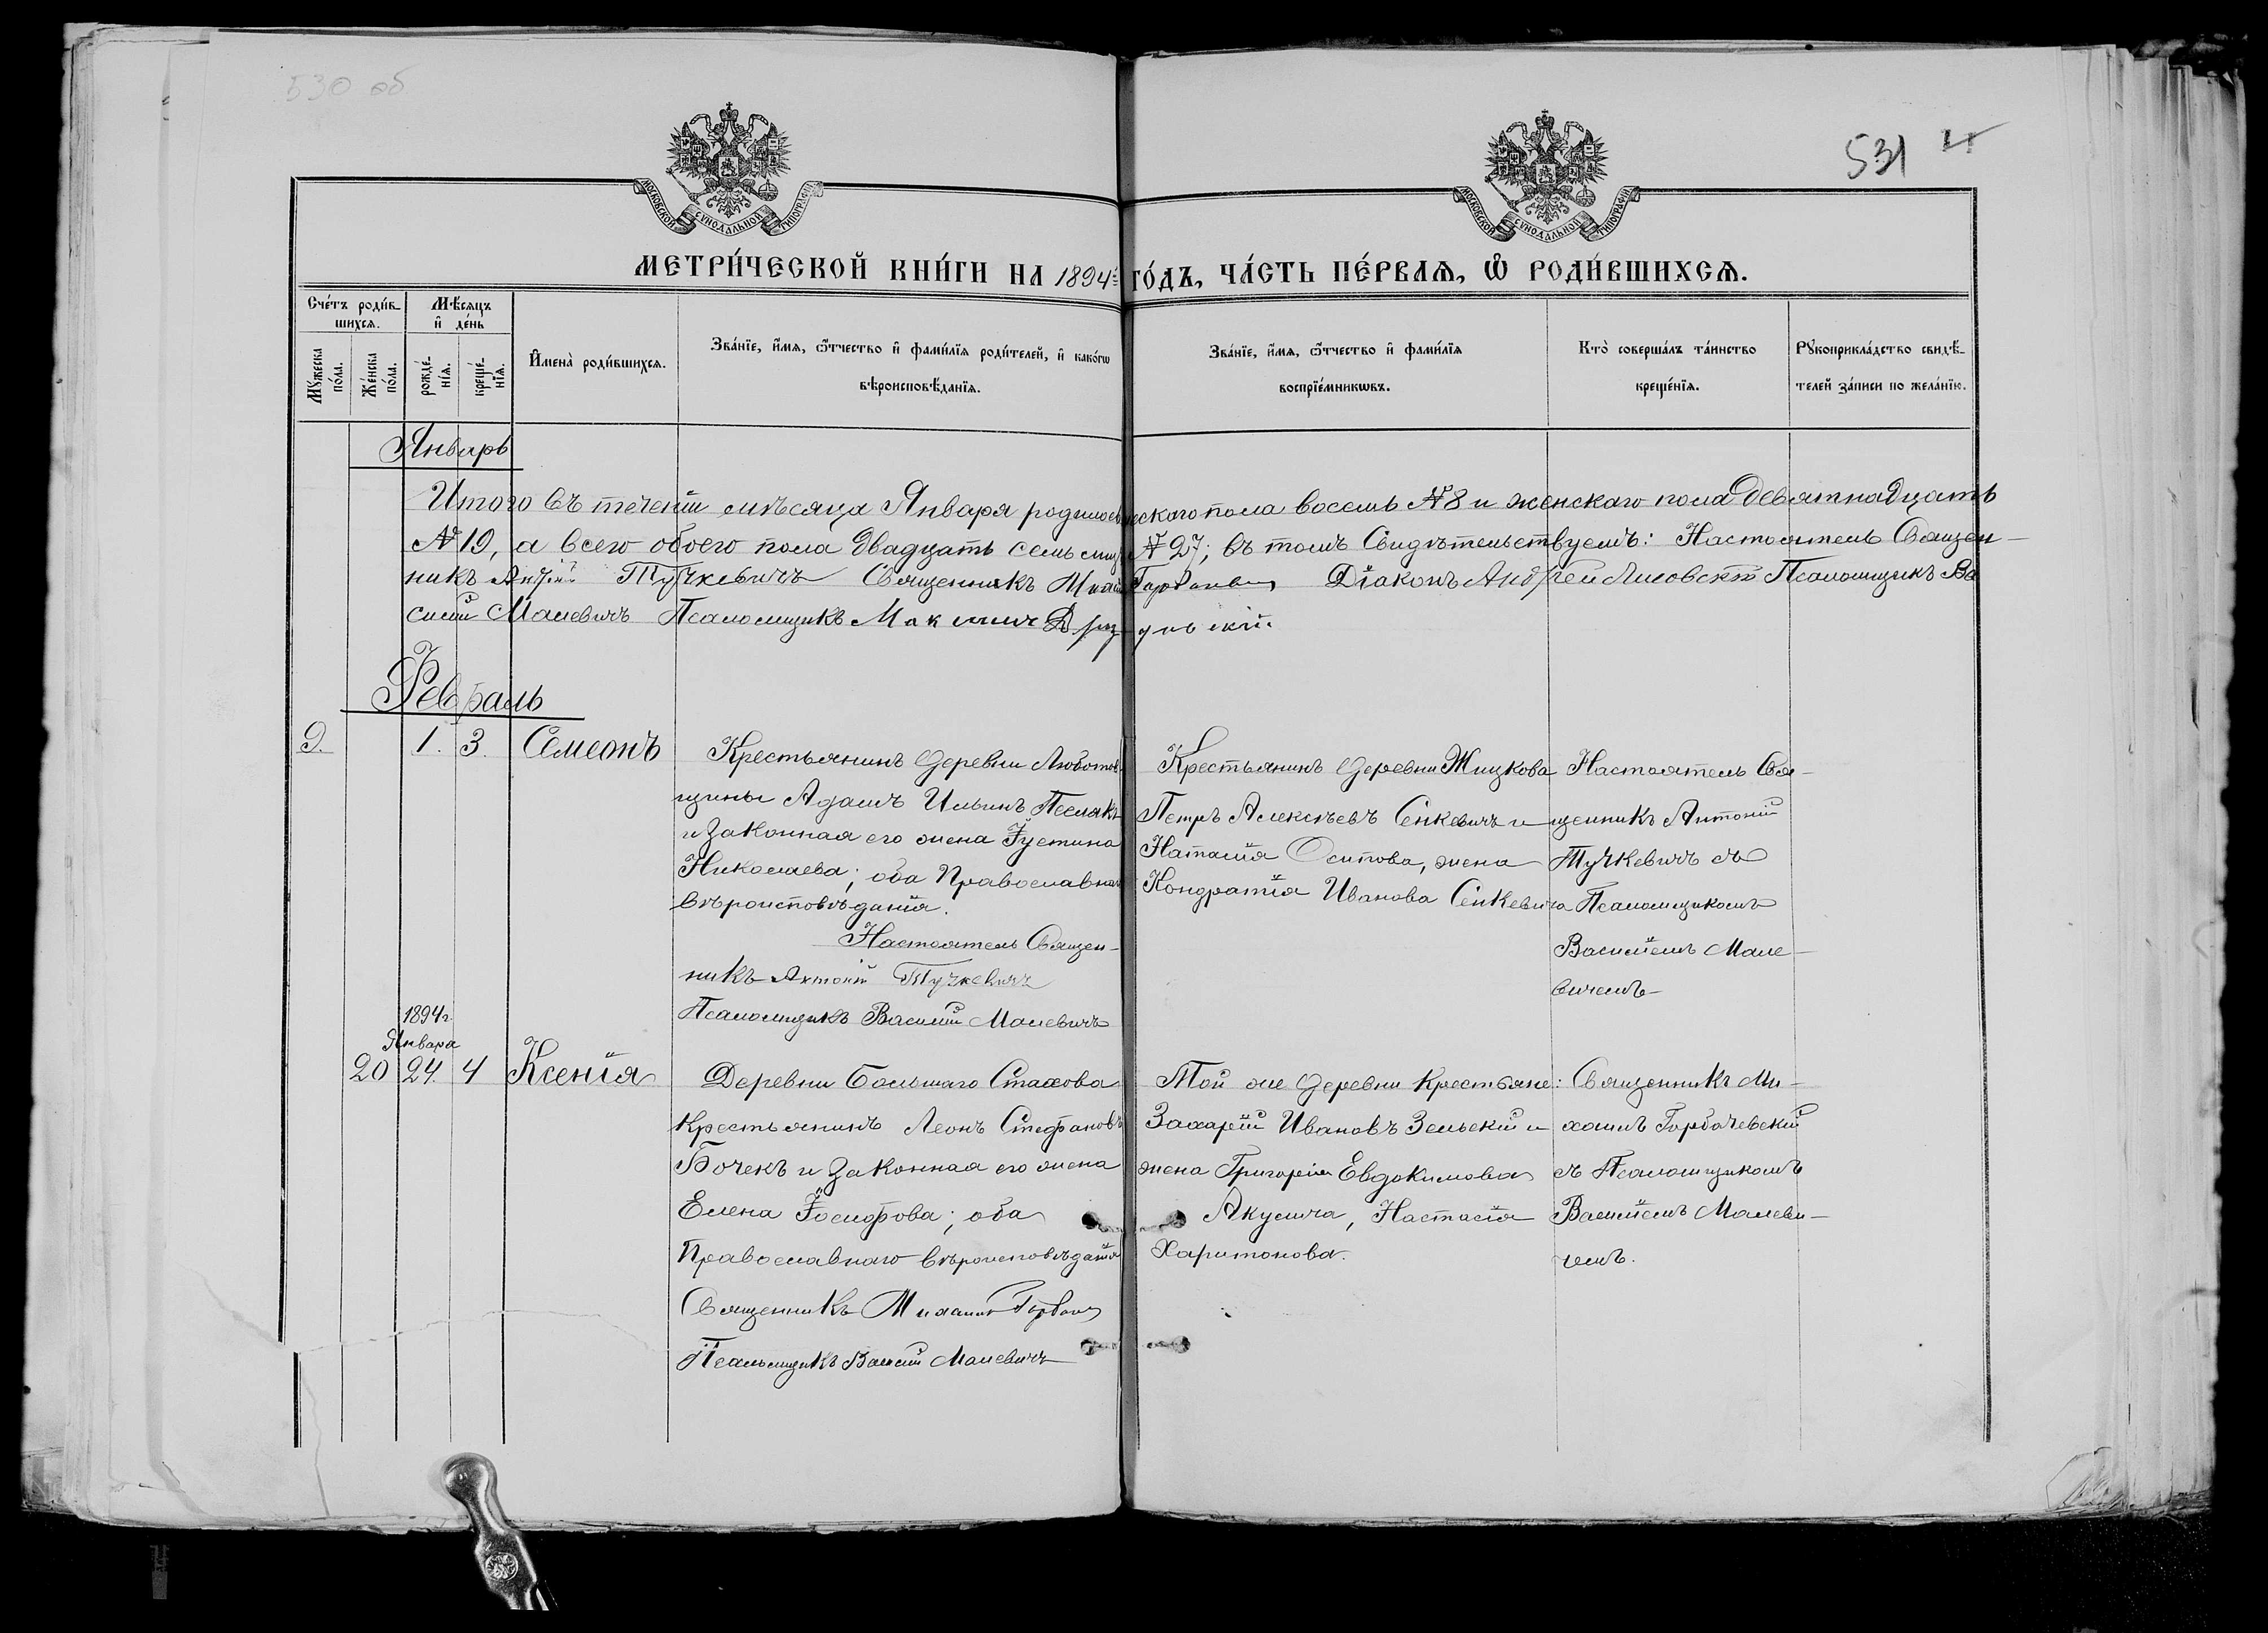 530 об
531
МОСКОВСКОЙ СУНОДАЛЬНОЙ ТИПОГРАФІИ
МОСКОВСКОЙ СУНОДАЛЬНОЙ ТИПОГРАФІИ
МЕТРИ́ЧЕСКОЙ КНИ́ГИ НА 1894й ГО́ДЪ, ЧА́СТЬ ПЕ́РВАѦ, Ѡ РОДИ́ВШИХСѦ.
Счéтъ роди́в-
шихсѧ.
Мѣ́сѧцъ
и҆ дéнь
Мꙋ́жеска
по́ла.
Жéнска
по́ла.
рождé-
нїѧ.
крещé-
нїѧ.
И҆менà роди́вшихсѧ.
Звáнїе, и҆́мѧ, ѻ҆́тчество и҆ фами́лїѧ роди́телей, и҆ какóгѡ
вѣроисповѣ́данїѧ.
Звáнїе, и҆́мѧ, ѻ҆́тчество и҆ фами́лїѧ
воспрїéмникѡвъ.
Ктò совершáлъ тáинство
крещéнїѧ.
Рꙋкоприклáдство свидѣ́-
телей зáписи по желáнїю.
Январь
Итого въ теченіи мѣсяца Января родилось ческого пола восемь №8 и женскаго пола девятнадцать
№19, а всего обоего пола двадцать семь №27; въ томъ Свидѣтельствуемъ: Настоятель Священ-
никъ Антоній Тучкевичъ Священникъ Діаконъ Андрей Лисовскій Псаломщикъ Ва
силій Малевичъ Псаломщикъ Максимъ
Февраль
9. 1. 3. Семеонъ
Крестьянинъ деревни Люботов-
щины Адамъ Ильинъ Песлякъ
и законная его жена Іустина
Николаева; оба Православнаго
вѣроисповѣданія.
Настоятель Священ-
никъ Антоній Тучкевичъ
Псаломщикъ Василій Малевичъ
Крестьянинъ деревни Жицкова
Петръ Алексѣевъ Сенкевичъ и
Наталія Осипова, жена
Кондратія Иванова Сенкевича
Настоятель Свя-
щенникъ Антоній
Тучкевичъ съ
Псаломщикомъ
Василіемъ Мале-
вичемъ
1894г.
Января
20 24. 4 Ксенія
Деревни Большаго Стахова
крестьянинъ Леонъ Стефановъ
Бочекъ и законная его жена
Елена Іосифова; оба
Православнаго вѣроисповѣданія
Священникъ Михаилъ
Псаломщикъ Василій Малевичъ
Той же деревни крестьяне:
Захарій Ивановъ Зельскій и
жена Григорія Евдокимова
Акулича, Настасія
Харитонова.
Священникъ Ми-
хаилъ Горбачевскій
съ Псаломщикомъ
Василіемъ Малеви-
чемъ.